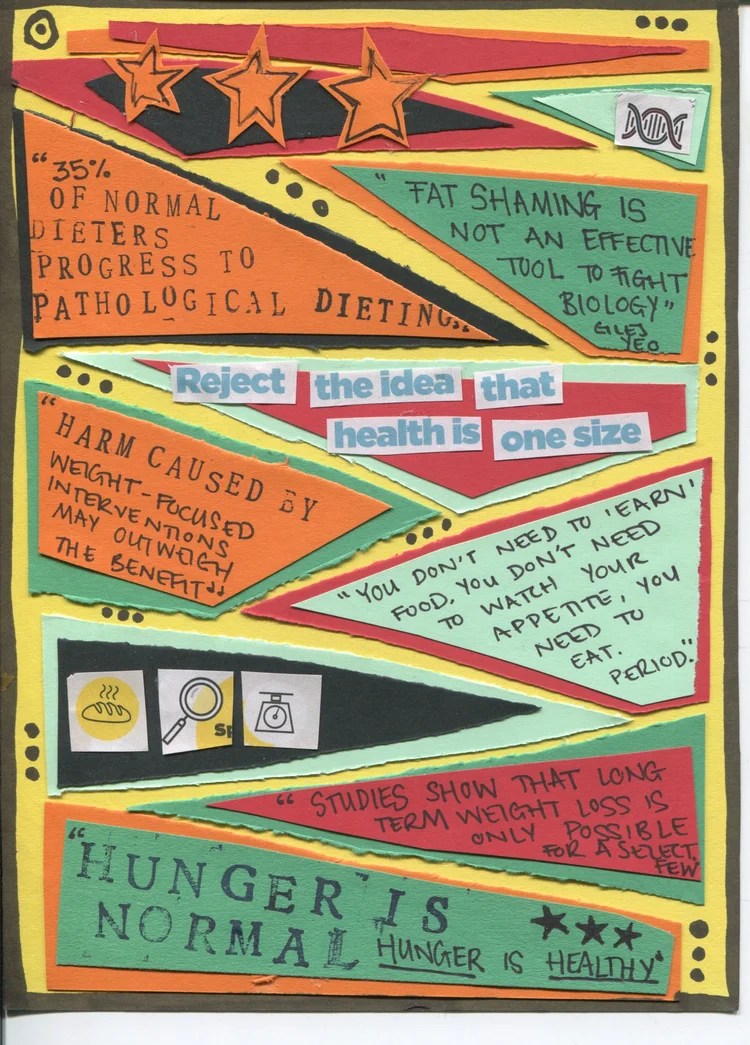 “35%
OF NORMAL
DIETERS
PROGRESS TO
PATHOLOGICAL DIETING”
“FAT SHAMING IS
NOT AN EFFECTIVE
TOOL TO FIGHT
BIOLOGY”
GILES
YEO
Reject the idea that
health is one size
“HARM CAUSED BY
WEIGHT-FOCUSED
INTERVENTIONS
MAY OUTWEIGH
THE BENEFIT”
“YOU DON'T NEED TO 'EARN'
FOOD. YOU DON'T NEED
TO WATCH YOUR
APPETITE, YOU
NEED TO
EAT.
PERIOD.”
SP
“STUDIES SHOW THAT LONG
TERM WEIGHT LOSS IS
ONLY POSSIBLE
FOR A SELECT
FEW
“HUNGER IS
NORMAL HUNGER IS HEALTHY”